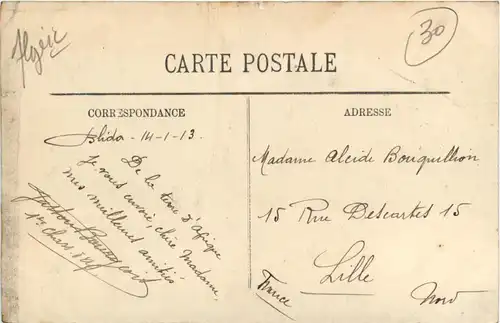 Algérie
30
CARTE POSTALE
CORRESPONDANCE
Blida - 14-1-13.
De la terre d'Afrique
je vous envoie, chère Madame,
mes meilleures amitiés
1er chass. d'Af.
ADRESSE
Madame Alcide Bouquillion
15 Rue Descartes 15
Lille
France
Nord